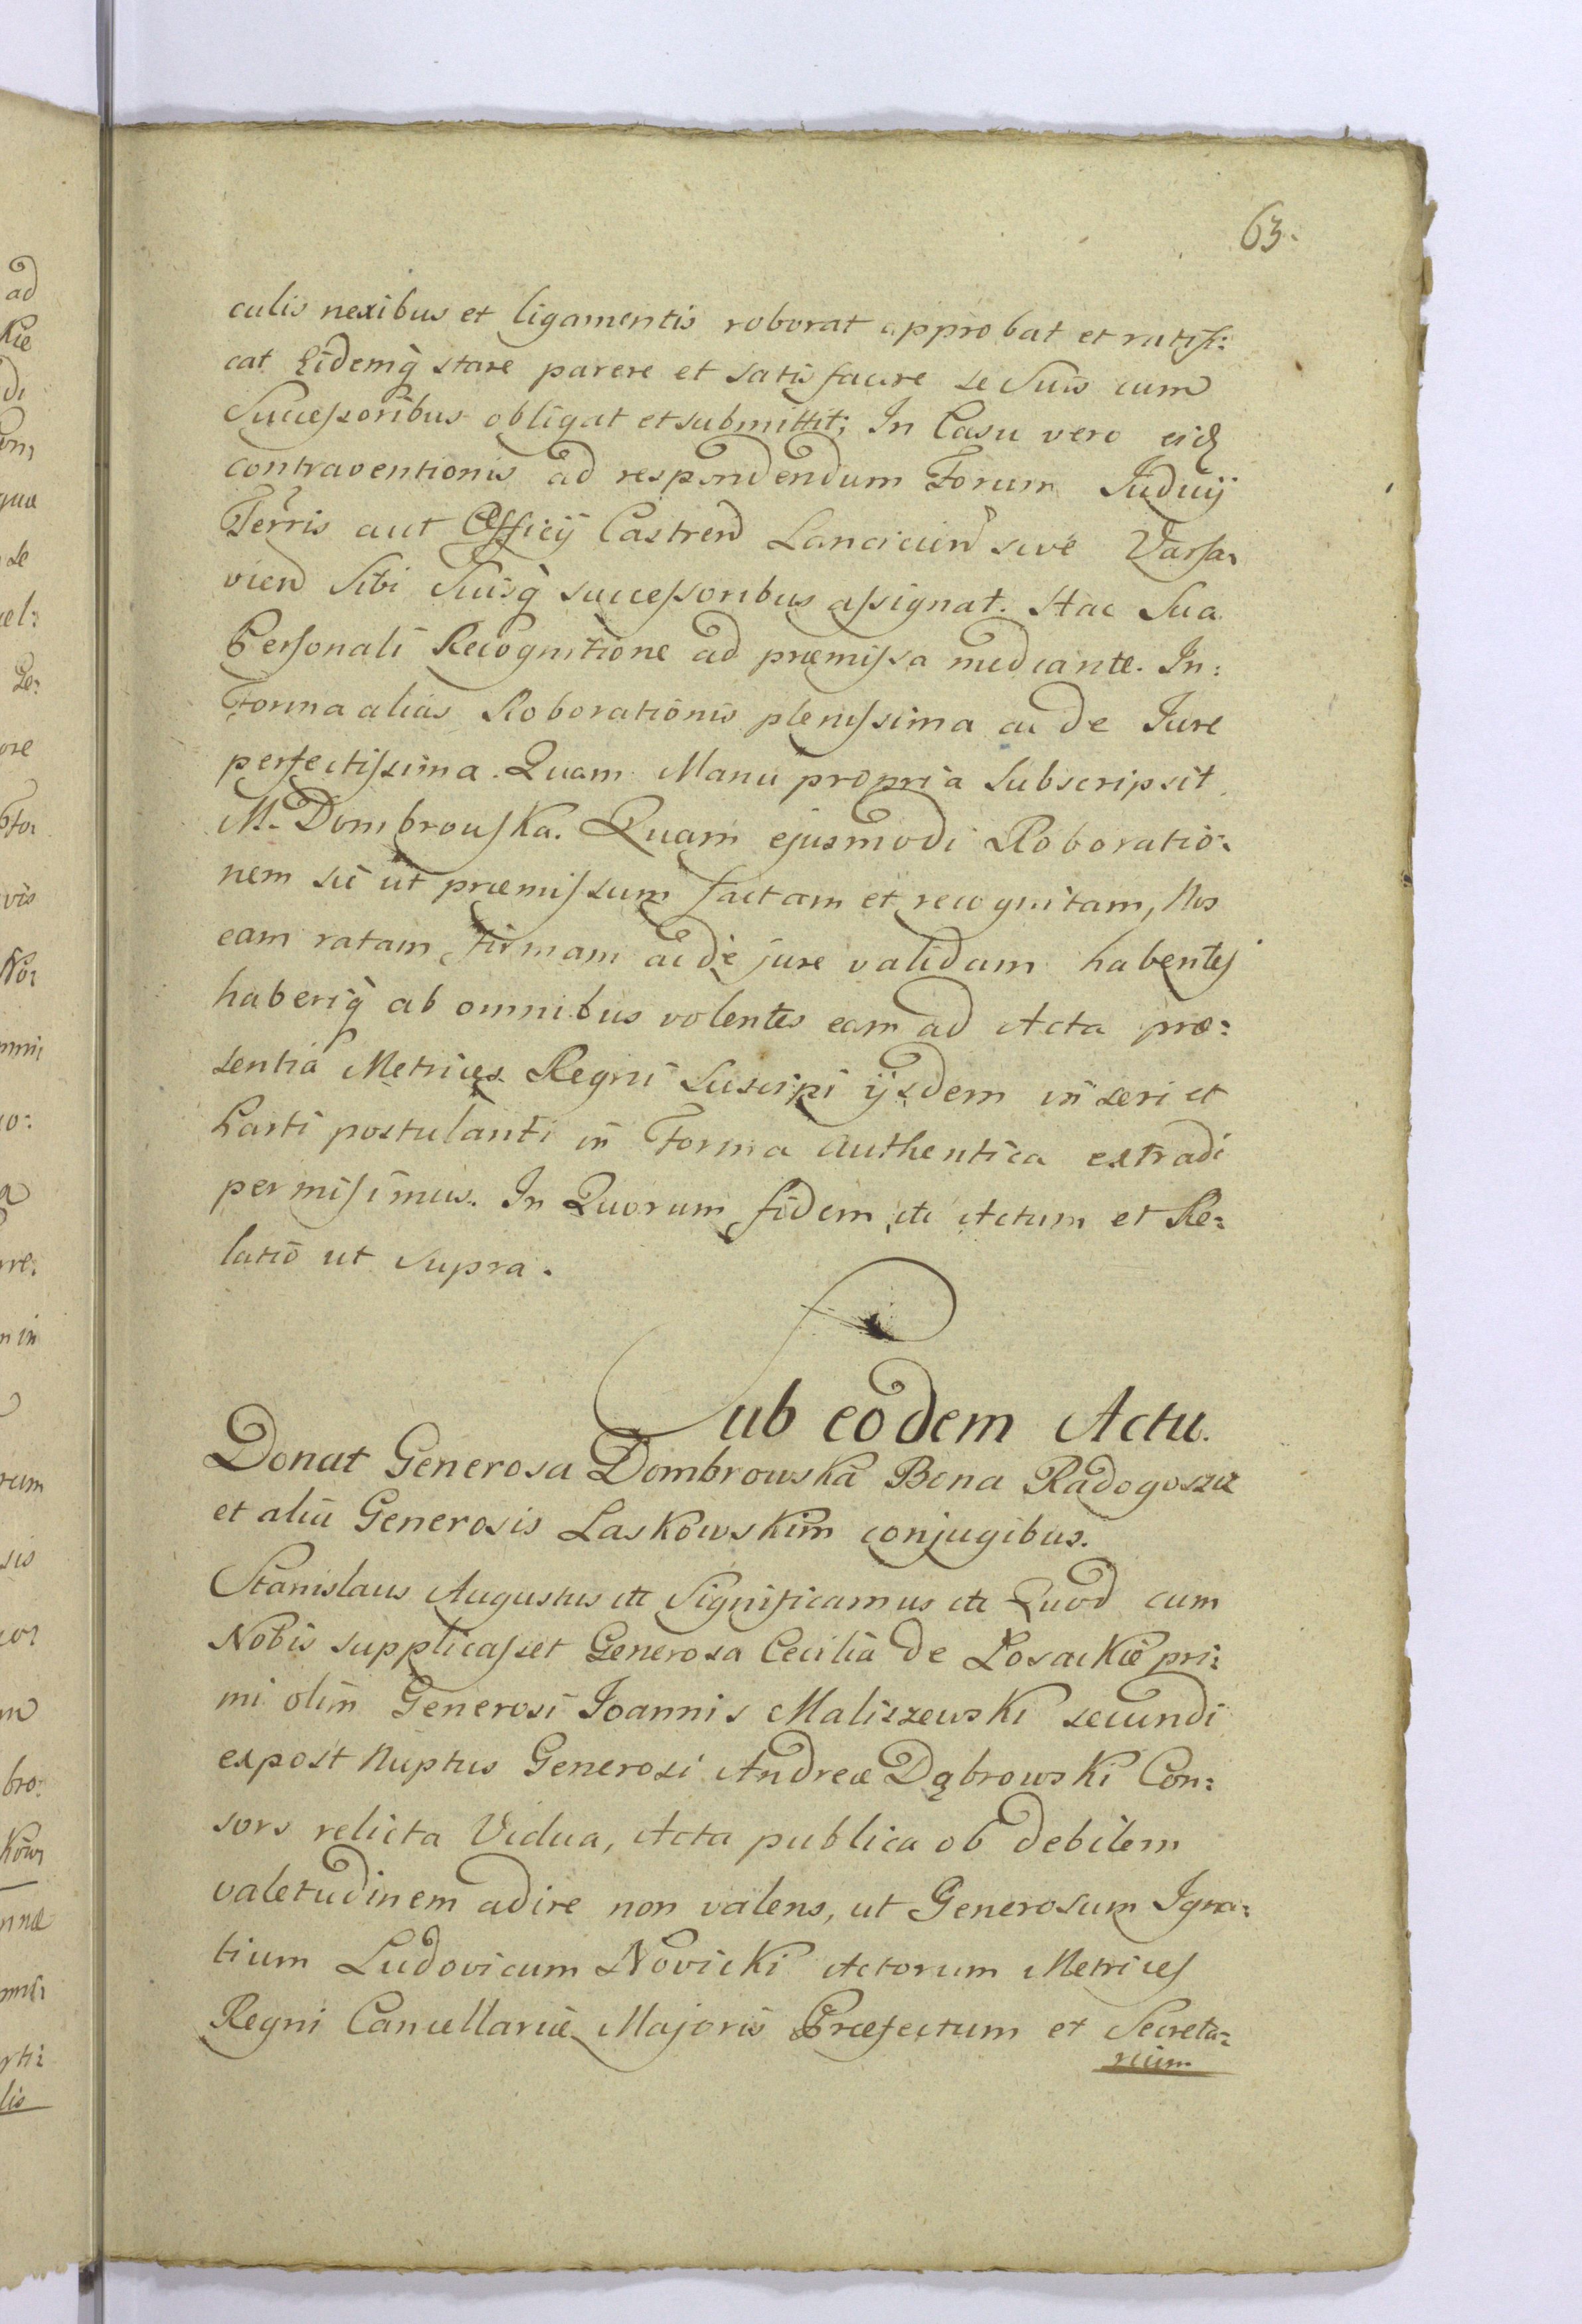 63.
culis nexibus et ligamentis roborat approbat et ratifi:
cat Eidemq̀ stare parere et satisfacere se Suis cum
Succeſsoribus obligat et submittit; In Casu vero
contraventionis ad respondendum Forum Judicij
Terris aut Officij Castren Lancicien sive Varsa:
vien Sibi Suisq̀ succeſsoribus aſsignat. Hac Sua
Personali Recognitione ad præmiſsa mediante. In:
Forma alias Roborationis pleniſsima ac de Jure
perfectiſsima. Quam Manu propria subscripsit.
M. Dombrowska. Quam ejusmodi Roboratio:
nem sic ut præmiſsum factam et recognitam, Nos
eam ratam firmam ac de jure validam habentes
haberiq̀ ab omnibus volentes eam ad Acta præ:
sentia Metrices Regni suscipi ijsdem inseri et
Parti postulanti in Forma Authentica extradi
permisimus. In Quorum fidem etc Actum et Re:
latio ut supra.
Sub eodem Actu.
Donat Generosa Dombrowska Bona Radogoszcz
et alia Generosis Laskowskim conjugibus.
Stanislaus Augustus etc Significamus etc Quod cum
Nobis supplicaſset Generosa Cecilia de Losackie pri:
mi olim Generosi Joannis Maliszewski secundi
expost Nuptus Generosi Andreæ Dąbrowski Con:
sors relicta Vidua, Acta publica ob debilem
valetudinem adire non valens, ut Generosum Igna:
tium Ludovicum Novicki Actorum Metrices
Regni Cancellariæ Majoris Præfectum et Secreta:
rium